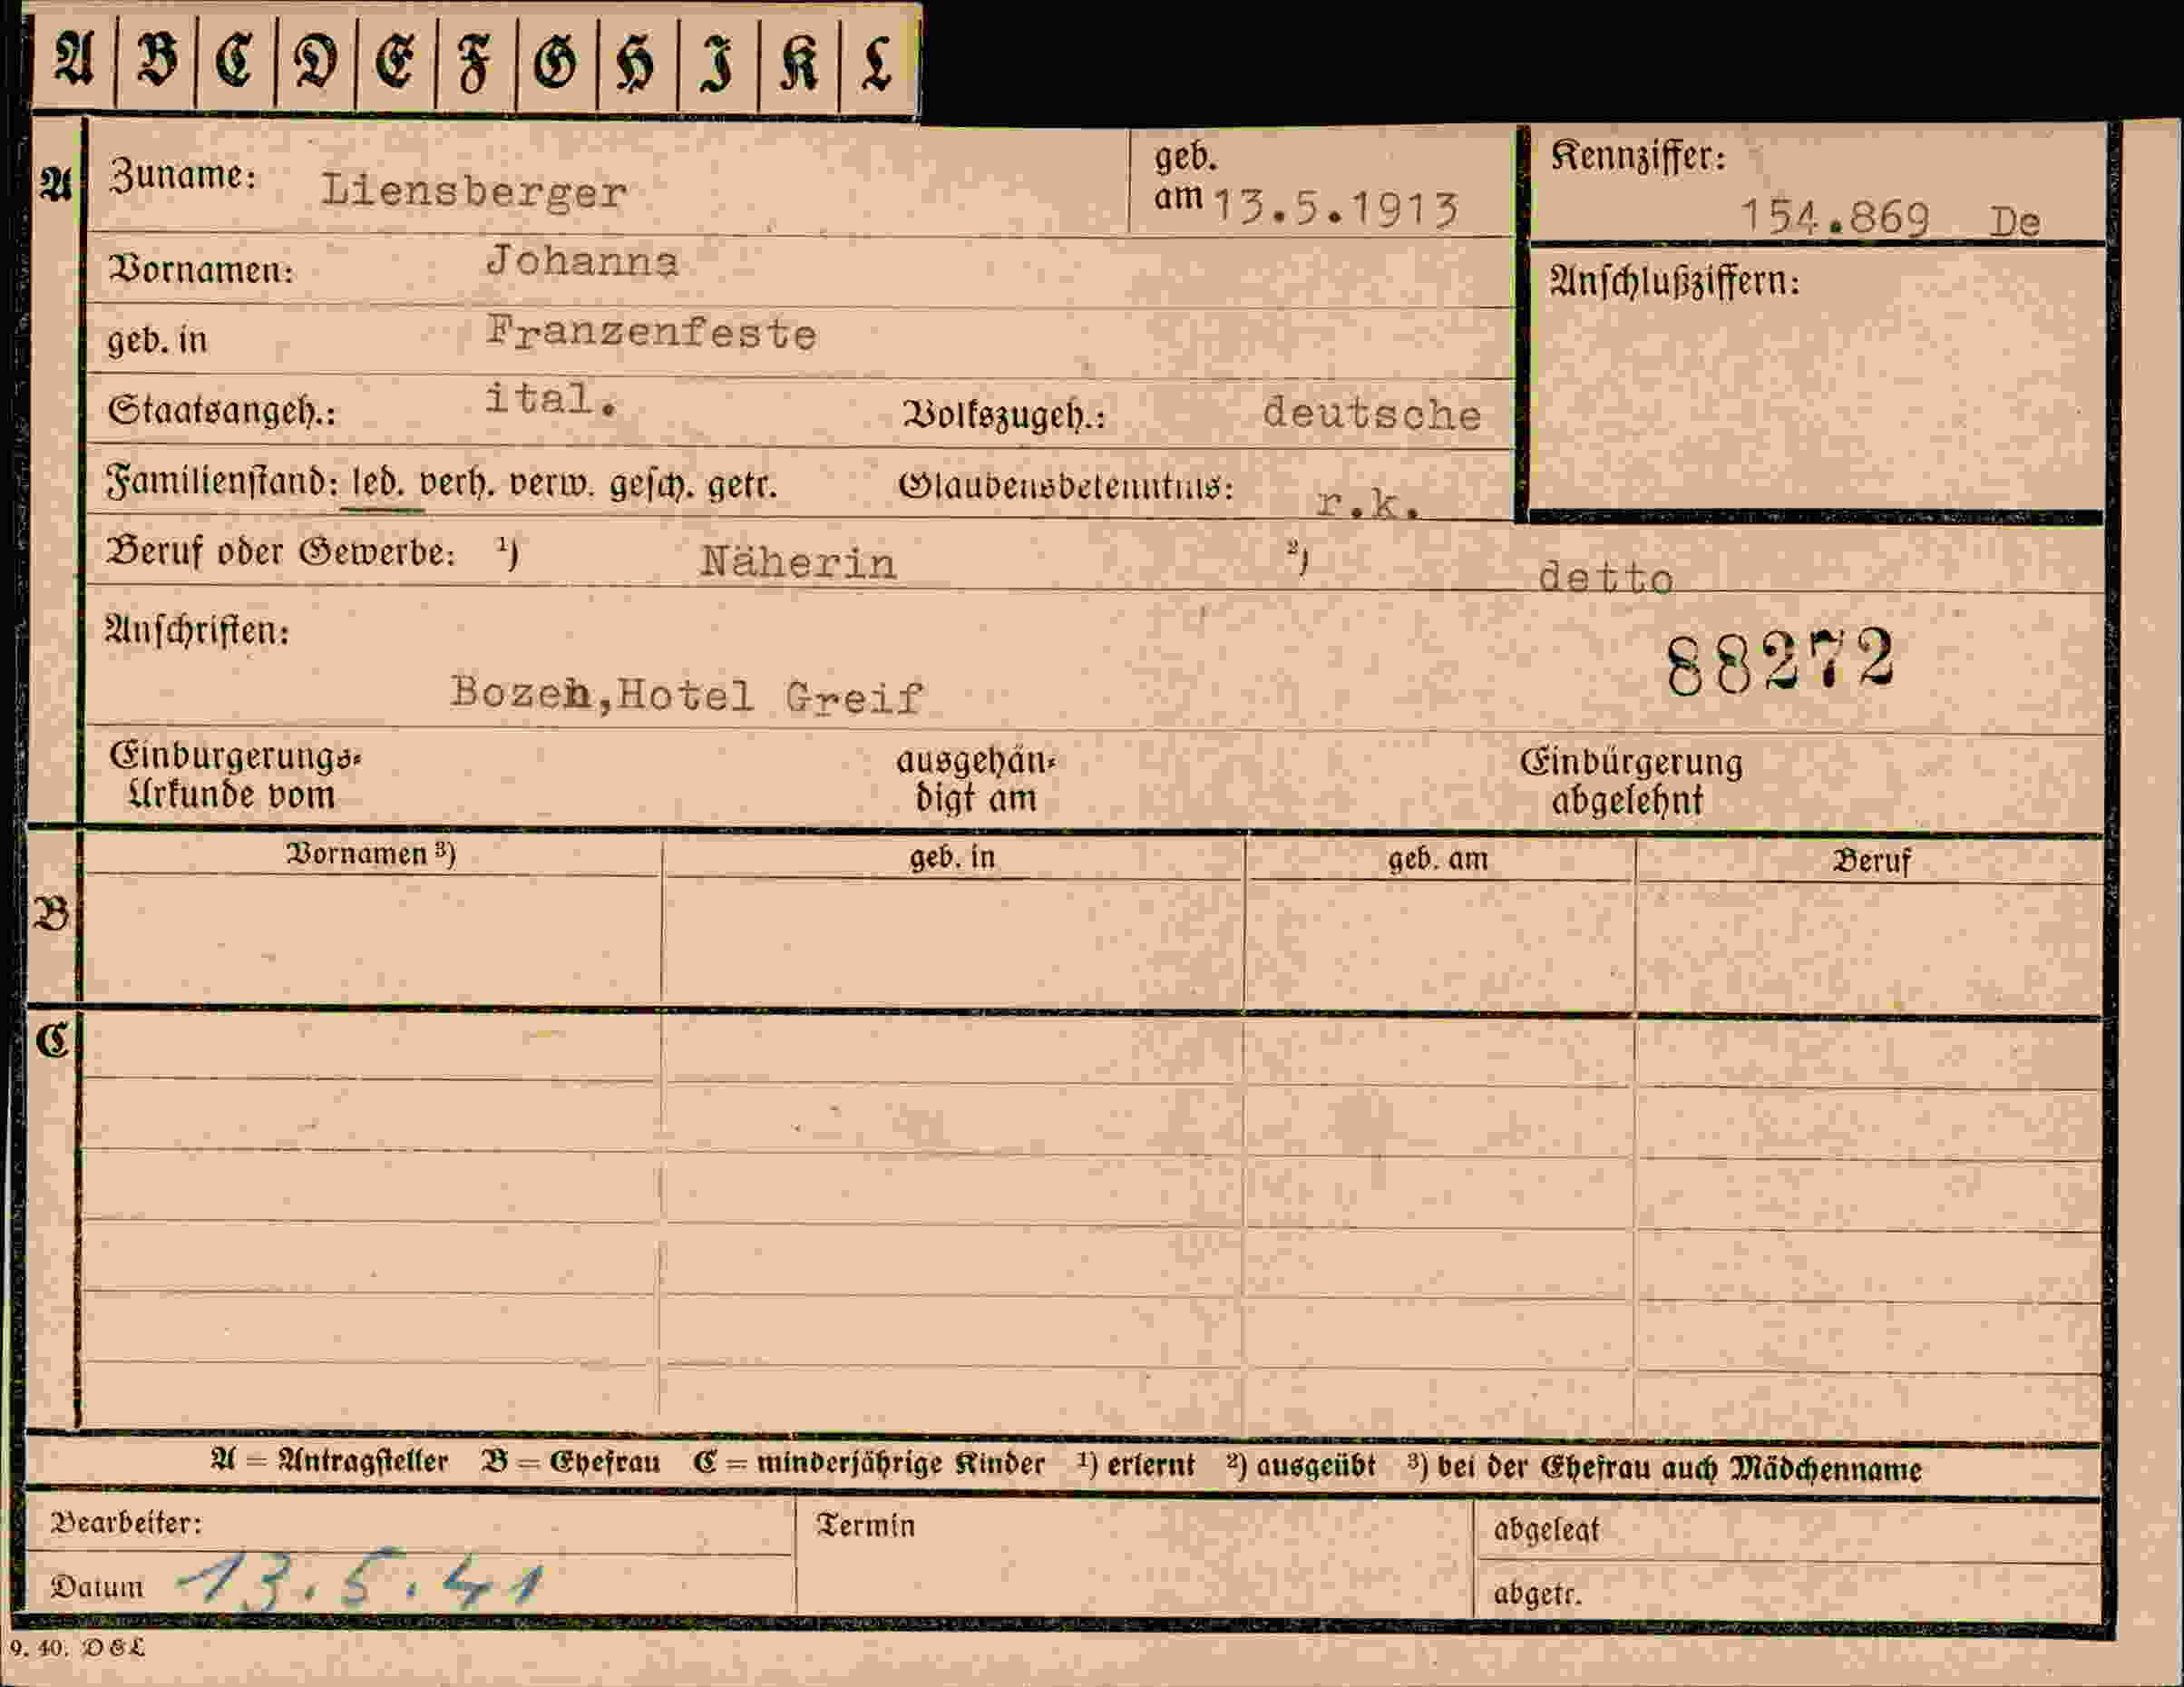 A B C D E F G H I K L
A Zuname: Liensberger geb. am 13.5.1913 Kennziffer: 154.869 De
Vornamen: Johanna Anschlußziffern:
geb. in Franzenfeste
Staatsangeh.: ital. Volkszugeh.: deutsche
Familienstand: led. verh. verw. gesch. getr. Glaubensbekenntnis: r.k.
Beruf oder Gewerbe: ¹) Näherin ²) detto
Anschriften: 88272
Bozen,Hotel Greif
Einbürgerungs- ausgehän- Einbürgerung
Urkunde vom digt am abgelehnt
Vornamen ³) geb. in geb. am Beruf
B
C
A = Antragsteller B = Ehefrau C = minderjährige Kinder ¹) erlernt ²) ausgeübt ³) bei der Ehefrau auch Mädchenname
Bearbeiter: Termin abgelegt
Datum 13.5.41 abgetr.
9. 40. DGL